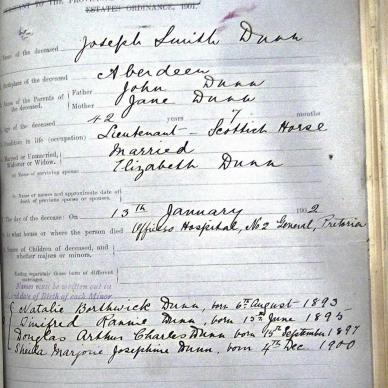 ESTATES ORDINANCE, 1901.
Name of the deceased Joseph Smith Dunn
Birthplace of the deceased Aberdeen
Names of the Parents of the deceased Father John Dunn
Mother Jane Dunn
Age of the deceased 42 years 7 months
Condition in life (occupation) Lieutenant - Scottish Horse
Married or Unmarried, Widower or Widow. Married
Name of surviving spouse Elizabeth Dunn
Name or names and approximate date of death of previous spouse or spouses.
The day of the decease: On 13th January 1902
At what house or where the person died Officers Hospital, No 2 General, Pretoria
Names of Children of deceased, and whether majors or minors.
Stating separately those born of different marriages.
Names must be written out in
date of Birth of each Minor
Natalie Borthwick Dunn, born 6th August - 1893
Winifred Rannie Dunn, born June 1895
Douglas Arthur Charles Dunn born 15th September 1897
Sheila Marjorie Josephine Dunn, born 4th Dec. 1900